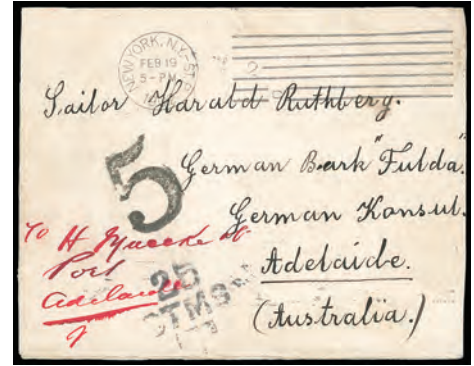 NEW YORK, N.Y.
FEB 19
5 - PM
Sailor Harald Ruthberg.
5
German Bark "Fulda."
German Konsul.
Adelaide.
(Australia.)
To H Muecke
Port
Adelaide
25
CTMS